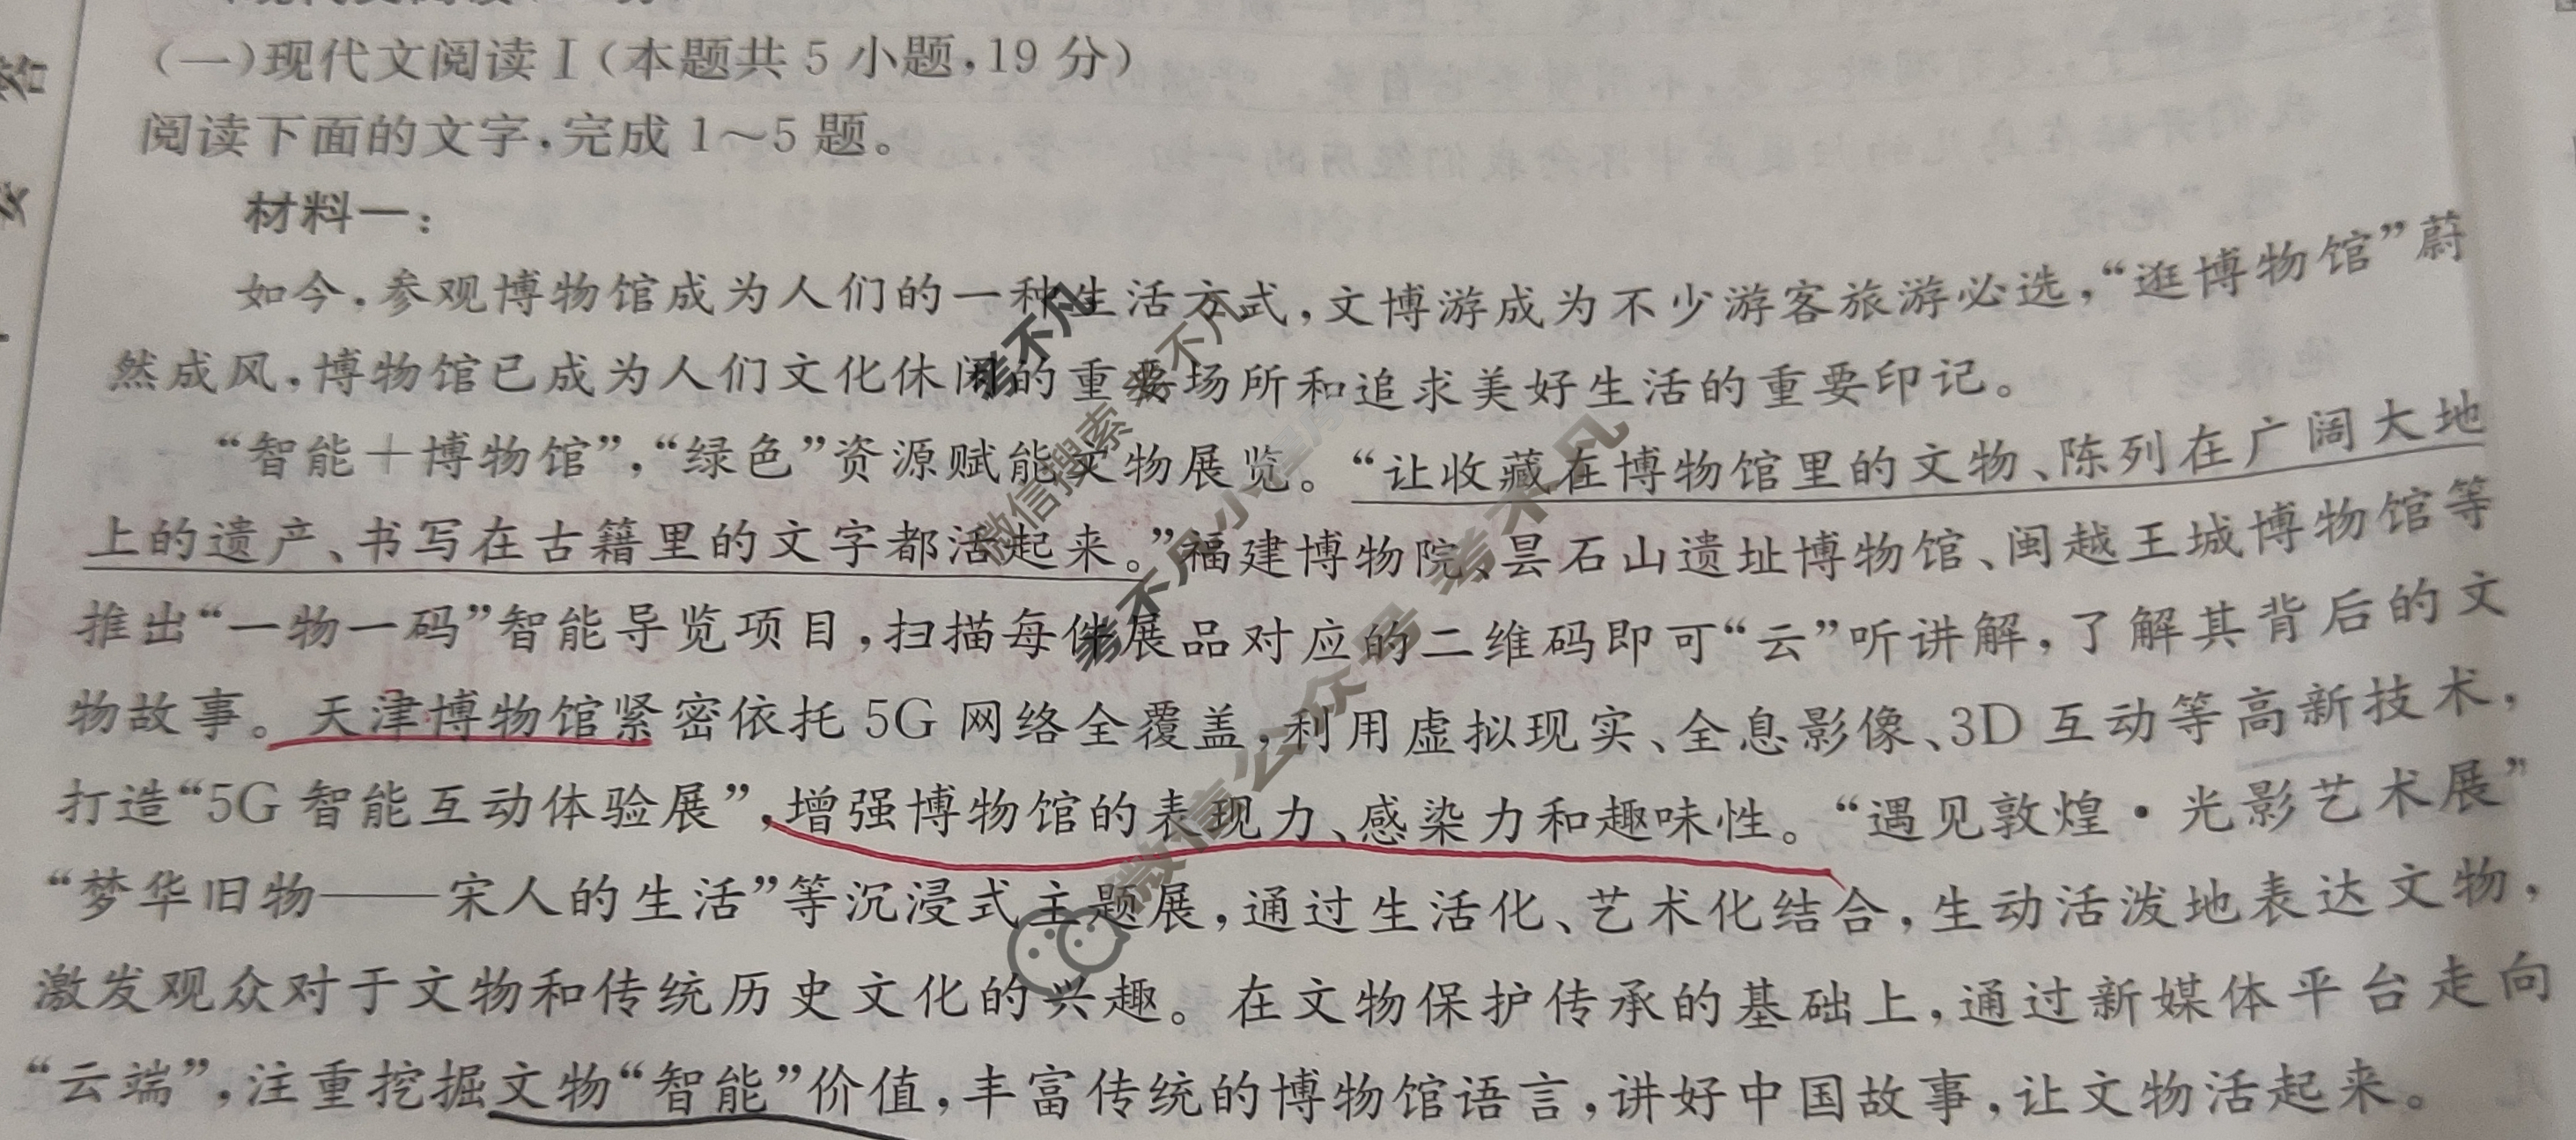 (一)现代文阅读Ⅰ(本题共5小题,19分)
阅读下面的文字,完成1～5题。
材料一:
如今,参观博物馆成为人们的一种生活方式,文博游成为不少游客旅游必选,“逛博物馆”蔚
然成风,博物馆已成为人们文化休闲的重要场所和追求美好生活的重要印记。
“智能+博物馆”,“绿色”资源赋能文物展览。“让收藏在博物馆里的文物、陈列在广阔大地
上的遗产、书写在古籍里的文字都活起来。”福建博物院、昙石山遗址博物馆、闽越王城博物馆等
推出“一物一码”智能导览项目,扫描每件展品对应的二维码即可“云”听讲解,了解其背后的文
物故事。天津博物馆紧密依托5G网络全覆盖,利用虚拟现实、全息影像、3D互动等高新技术,
打造“5G智能互动体验展”,增强博物馆的表现力、感染力和趣味性。“遇见敦煌·光影艺术展”
“梦华旧物——宋人的生活”等沉浸式主题展,通过生活化、艺术化结合,生动活泼地表达文物,
激发观众对于文物和传统历史文化的兴趣。在文物保护传承的基础上,通过新媒体平台走向
“云端”,注重挖掘文物“智能”价值,丰富传统的博物馆语言,讲好中国故事,让文物活起来。
微信搜索 考不凡
考不凡小
微信公众号 考不凡